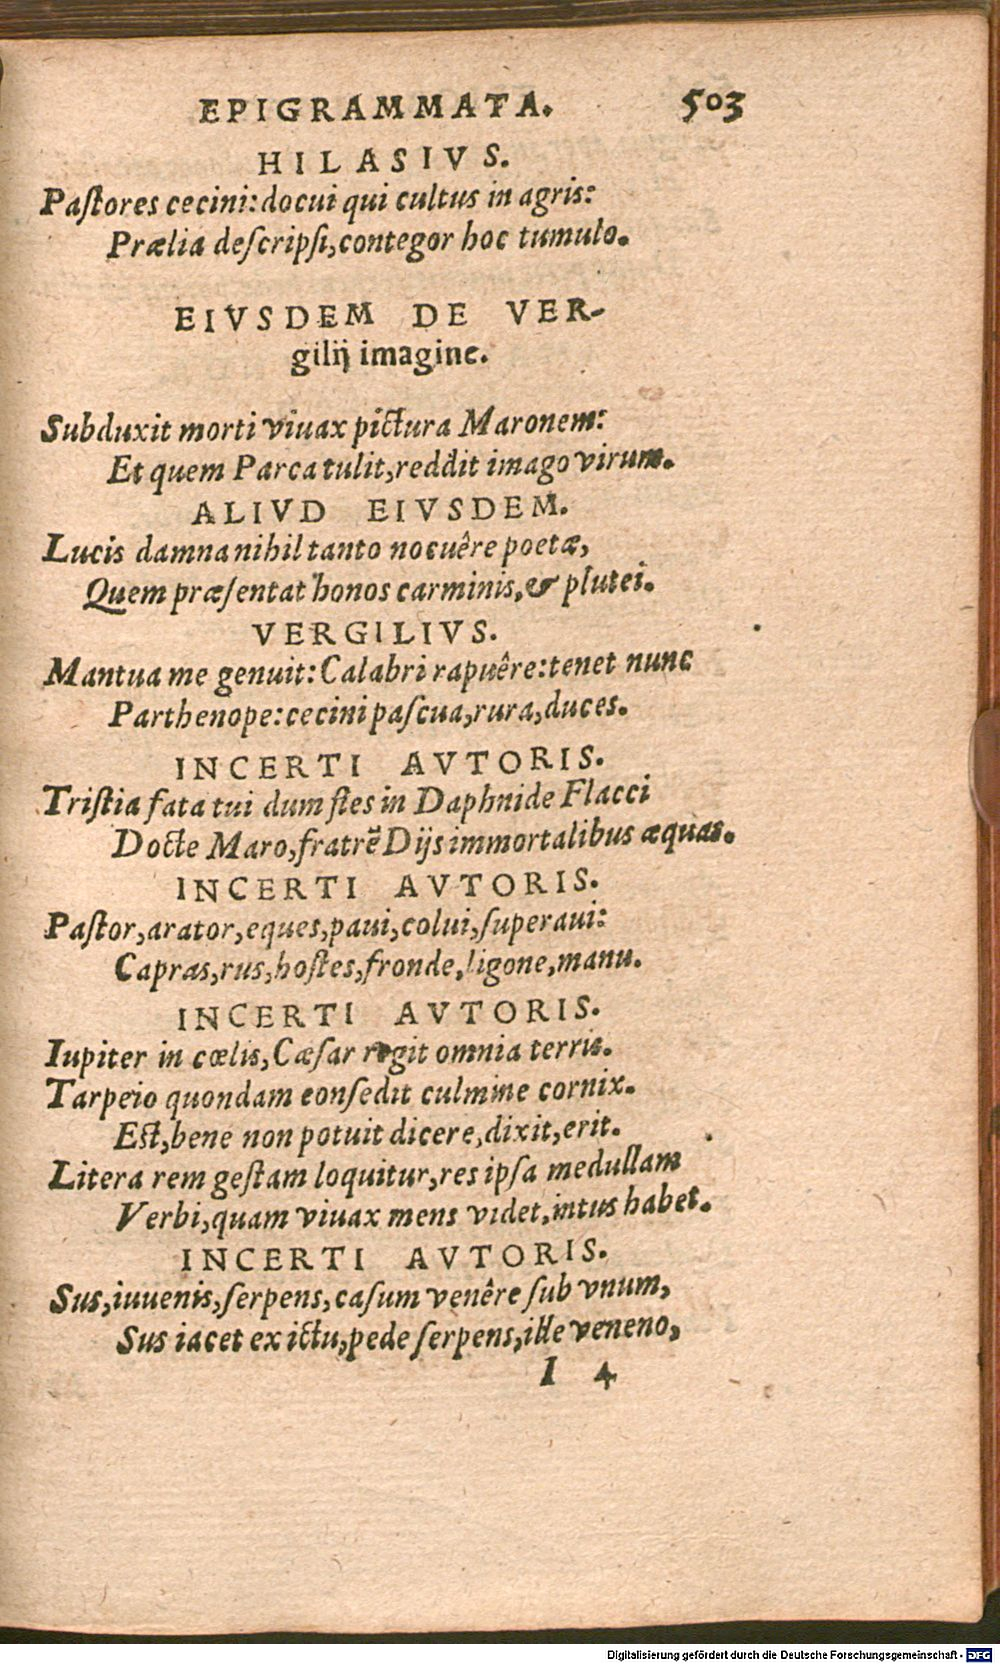 EPIGRAMMATA. 503
HILASIVS.
Paſtores cecini: docui qui cultus in agris:
Prælia deſcripſi, contegor hoc tumulo.
EIVSDEM DE VER-
gilij imagine.
Subduxit morti viuax pictura Maronem:
Et quem Parca tulit, reddit imago virum.
ALIVD EIVSDEM.
Lucis damna nihil tanto nocuêre poetæ,
Quem præſentat honos carminis, & plutei.
VERGILIVS.
Mantua me genuit: Calabri rapuêre: tenet nunc
Parthenope: cecini paſcua, rura, duces.
INCERTI AVTORIS.
Triſtia fata tui dum fles in Daphnide Flacci
Docte Maro, fratrē Dijs immortalibus æquas.
INCERTI AVTORIS.
Paſtor, arator, eques, paui, colui, ſuperaui:
Capras, rus, hoſtes, fronde, ligone, manu.
INCERTI AVTORIS.
Iupiter in cœlis, Cæſar regit omnia terris.
Tarpeio quondam conſedit culmine cornix.
Eſt, bene non potuit dicere, dixit, erit.
Litera rem geſtam loquitur, res ipſa medullam
Verbi, quam viuax mens videt, intus habet.
INCERTI AVTORIS.
Sus, iuuenis, ſerpens, caſum venêre ſub vnum,
Sus iacet ex ictu, pede ſerpens, ille veneno,
I 4
Digitalisierung gefördert durch die Deutsche Forschungsgemeinschaft - DFG